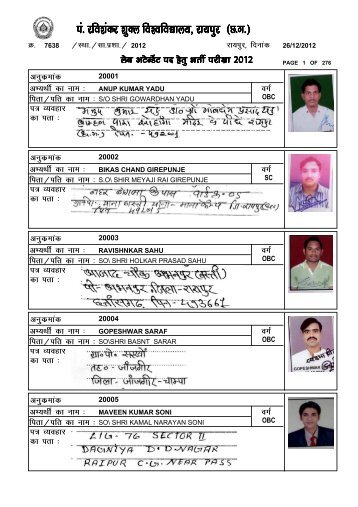 पं. रविशंकर शुक्ल विश्वविद्यालय, रायपुर (छ.ग.)
क्र. 7638 /स्था./सा.प्रशा./ 2012 रायपुर, दिनांक 26/12/2012
लैब अटेन्डेंट पद हेतु भर्ती परीक्षा 2012
PAGE 1 OF 276
अनुक्रमांक 20001
अभ्यर्थी का नाम : ANUP KUMAR YADU वर्ग
पिता/पति का नाम : S/O SHRI GOWARDHAN YADU OBC
पत्र व्यवहार
का पता :
अनुक्रमांक 20002
अभ्यर्थी का नाम : BIKAS CHAND GIREPUNJE वर्ग
पिता/पति का नाम : S.O/ SHIR MEYAJI RAI GIREPUNJE SC
पत्र व्यवहार
का पता :
अनुक्रमांक 20003
अभ्यर्थी का नाम : RAVISHNKAR SAHU वर्ग
पिता/पति का नाम : SO\ SHRI HOLKAR PRASAD SAHU OBC
पत्र व्यवहार आजाद चौक अभनपुर (बस्ती)
का पता : पो. अभनपुर जिला-रायपुर
छत्तीसगढ़ पिन-493661
अनुक्रमांक 20004
अभ्यर्थी का नाम : GOPESHWAR SARAF वर्ग
पिता/पति का नाम : SO\SHRI BASNT SARAF OBC
पत्र व्यवहार ग्रा०पो०
का पता : तह० - जाँजगीर
जिला - जाँजगीर-चाम्पा
GOPESHWAR
अनुक्रमांक 20005
अभ्यर्थी का नाम : MAVEEN KUMAR SONI वर्ग
पिता/पति का नाम : SO\ SHRI KAMAL NARAYAN SONI OBC
पत्र व्यवहार LIG-76 SECTOR II
का पता : DAGNIYA D.D.NAGAR
RAIPUR C.G. NEAR PASS